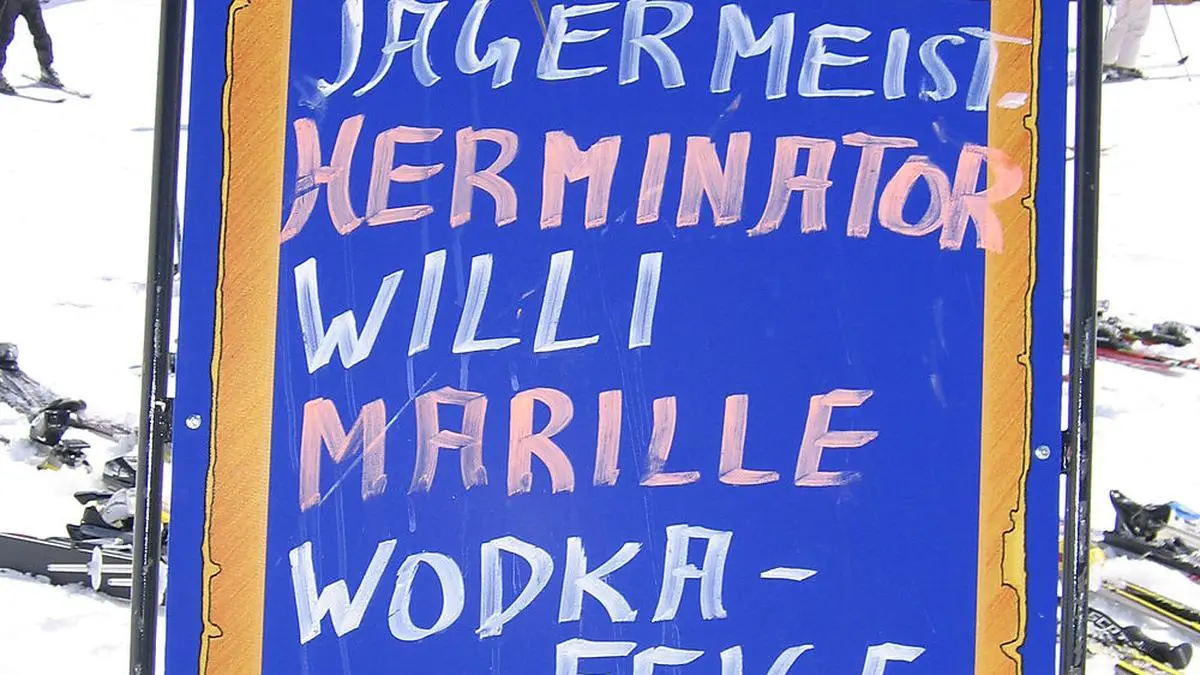 JÄGERMEIST.
HERMINATOR
WILLI
MARILLE
WODKA-
FEIGE